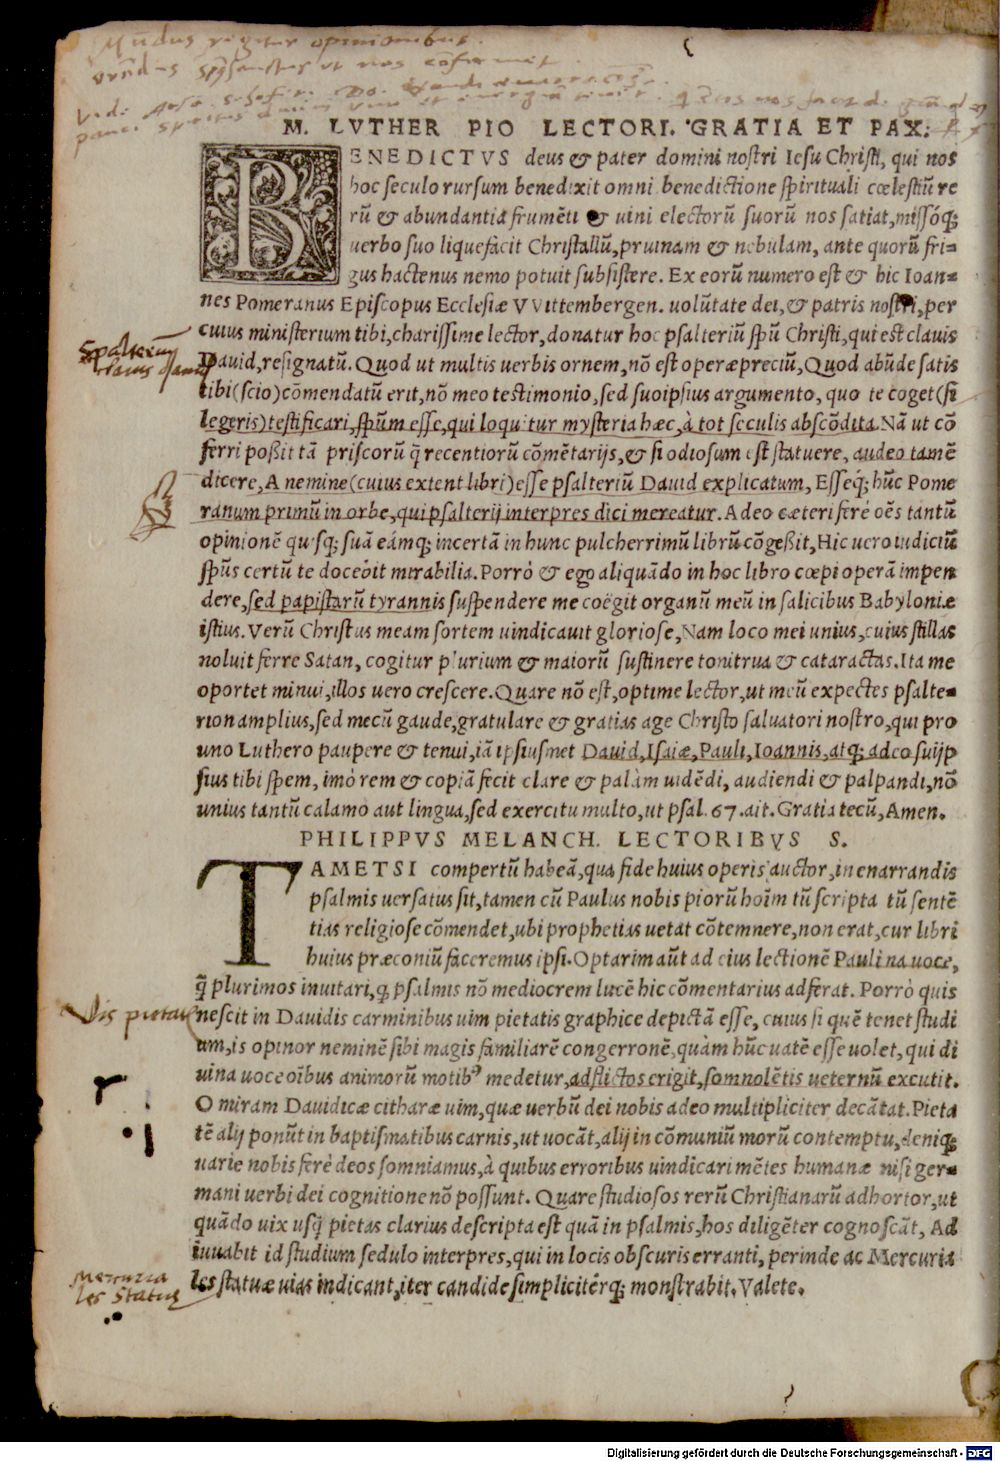 Mũdus regitur opinionibus.
M. LVTHER PIO LECTORI. GRATIA ET PAX.
BENEDICTVS deus & pater domini nostri Iesu Christi, qui nos
hoc seculo rursum benedixit omni benedictione spirituali cœlestiũ re
rũ & abundantia frumẽti & uini electorũ suorũ nos satiat, missóq;
uerbo suo liquefacit Christallũ, pruinam & nebulam, ante quorũ fri=
gus hactenus nemo potuit subsistere. Ex eorũ numero est & hic Ioan=
nes Pomeranus Episcopus Ecclesiæ VVittembergen. uolũtate dei, & patris nostri, per
cuius ministerium tibi, charissime lector, donatur hoc psalteriũ spũ Christi, qui est clauis
Dauid, resignatũ. Quod ut multis uerbis ornem, nõ est operæpreciũ, Quod abũde satis
tibi (scio) cõmendatũ erit, nõ meo testimonio, sed suoipsius argumento, quo te coget (si
legeris) testificari, spũm esse, qui loquitur mysteria hæc, à tot seculis abscõdita. Nã ut cõ
ferri poßit tã priscorũ q̃ recentiorũ cõmẽtarijs, & si odiosum est statuere, audeo tamẽ
dicere, A nemine (cuius extent libri) esse psalteriũ Dauid explicatum, Esseq́; hũc Pome
ranum primũ in orbe, qui psalterij interpres dici mereatur. Adeo cæteri ferè oẽs tantũ
opinionẽ quisq; suã eámq; incertã in hunc pulcherrimũ librũ cõgeßit, Hic uero iudiciũ
spũs certũ te docebit mirabilia. Porrò & ego aliquãdo in hoc libro cœpi operã impen
dere, sed papistarũ tyrannis suspendere me coëgit organũ meũ in salicibus Babyloniæ
istius. Verũ Christus meam sortem uindicauit gloriose, Nam loco mei unius, cuius stillas
noluit ferre Satan, cogitur plurium & maiorũ sustinere tonitrua & cataractas. Ita me
oportet minui, illos uero crescere. Quare nõ est, optime lector, ut meũ expectes psalte=
rion amplius, sed mecũ gaude, gratulare & gratias age Christo saluatori nostro, qui pro
uno Luthero paupere & tenui, iã ipsiusmet Dauid, Isaiæ, Pauli, Ioannis, atq; adeo suijp
sius tibi spem, imò rem & copiã fecit clare & palàm uidẽdi, audiendi & palpandi, nõ
unius tantũ calamo aut lingua, sed exercitu multo, ut psal. 67. ait. Gratia tecũ, Amen.
PHILIPPVS MELANCH. LECTORIBVS S.
TAMETSI compertũ habeã, qua fide huius operis auctor, in enarrandis
psalmis uersatus sit, tamen cũ Paulus nobis piorũ hoĩm tũ scripta tũ sentẽ
tias religiose cõmendet, ubi prophetias uetat cõtemnere, non erat, cur libri
huius præconiũ faceremus ipsi. Optarim aũt ad eius lectionẽ Paulina uoce,
q̃ plurimos inuitari, q; psalmis nõ mediocrem lucẽ hic cõmentarius adferat. Porrò quis
Vis pietatis
nescit in Dauidis carminibus uim pietatis graphice depictã esse, cuius si quẽ tenet studi
um, is opinor neminẽ sibi magis familiarẽ congerronẽ, quàm hũc uatẽ esse uolet, qui di
uina uoce oĩbus animorũ motibꝰ medetur, adflictos erigit, somnolẽtis ueternũ excutit.
O miram Dauidicæ citharæ uim, quæ uerbũ dei nobis adeo multipliciter decãtat. Pieta
tẽ alij ponũt in baptismatibus carnis, ut uocãt, alij in cõmuniũ morũ contemptu, deniq;
uarie nobis ferè deos somniamus, à quibus erroribus uindicari mẽtes humanæ nisi ger=
mani uerbi dei cognitione nõ possunt. Quare studiosos rerũ Christianarũ adhortor, ut
quãdo uix usq̃ pietas clarius descripta est quã in psalmis, hos diligẽter cognoscãt, Ad
iuuabit id studium sedulo interpres, qui in locis obscuris erranti, perinde ac Mercuria
les statuæ uias indicant, iter candide simplicitérq; monstrabit. Valete.
Mercuria
les statuæ
Digitalisierung gefördert durch die Deutsche Forschungsgemeinschaft - DFG